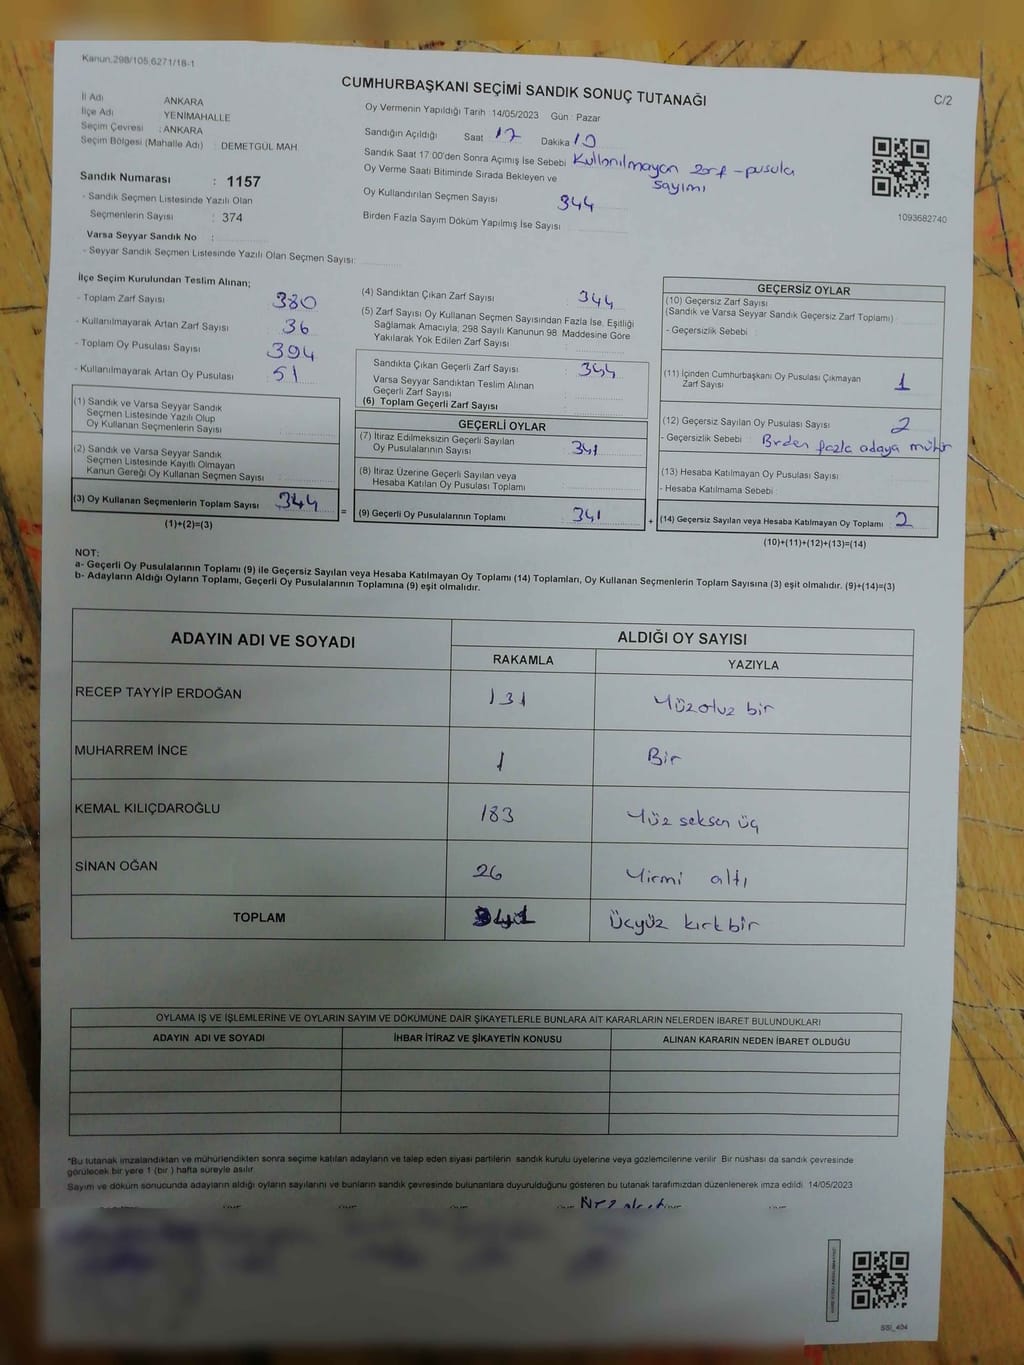 Kanun.298/105,6271/18-1
CUMHURBAŞKANI SEÇİMİ SANDIK SONUÇ TUTANAĞI
C/2
İl Adı ANKARA
İlçe Adı YENİMAHALLE
Seçim Çevresi : ANKARA
Seçim Bölgesi (Mahalle Adı) : DEMETGÜL MAH
Sandık Numarası : 1157
- Sandık Seçmen Listesinde Yazılı Olan
Seçmenlerin Sayısı : 374
Varsa Seyyar Sandık No :
- Seyyar Sandık Seçmen Listesinde Yazılı Olan Seçmen Sayısı:
Oy Vermenin Yapıldığı Tarih : 14/05/2023 Gün : Pazar
Sandığın Açıldığı Saat 17 Dakika 10
Sandık Saat 17:00'den Sonra Açımış İse Sebebi Kullanılmayan zarf - pusula
sayımı
Oy Verme Saati Bitiminde Sırada Bekleyen ve
Oy Kullandırılan Seçmen Sayısı 344
Birden Fazla Sayım Döküm Yapılmış İse Sayısı
1093682740
İlçe Seçim Kurulundan Teslim Alınan;
- Toplam Zarf Sayısı 380
- Kullanılmayarak Artan Zarf Sayısı 36
- Toplam Oy Pusulası Sayısı 394
- Kullanılmayarak Artan Oy Pusulası 51
(1) Sandık ve Varsa Seyyar Sandık
Seçmen Listesinde Yazılı Olup
Oy Kullanan Seçmenlerin Sayısı
(2) Sandık ve Varsa Seyyar Sandık
Seçmen Listesinde Kayıtlı Olmayan
Kanun Gereği Oy Kullanan Seçmen Sayısı
(3) Oy Kullanan Seçmenlerin Toplam Sayısı 344
(1)+(2)=(3)
(4) Sandıktan Çıkan Zarf Sayısı : 344
(5) Zarf Sayısı Oy Kullanan Seçmen Sayısından Fazla İse, Eşitliği
Sağlamak Amacıyla; 298 Sayılı Kanunun 98. Maddesine Göre
Yakılarak Yok Edilen Zarf Sayısı :
Sandıkta Çıkan Geçerli Zarf Sayısı : 344
Varsa Seyyar Sandıktan Teslim Alınan
Geçerli Zarf Sayısı
(6) Toplam Geçerli Zarf Sayısı
GEÇERLİ OYLAR
(7) İtiraz Edilmeksizin Geçerli Sayılan
Oy Pusulalarının Sayısı 341
(8) İtiraz Üzerine Geçerli Sayılan veya
Hesaba Katılan Oy Pusulası Toplamı
= (9) Geçerli Oy Pusulalarının Toplamı 341
GEÇERSİZ OYLAR
(10) Geçersiz Zarf Sayısı
(Sandık ve Varsa Seyyar Sandık Geçersiz Zarf Toplamı)
- Geçersizlik Sebebi :
(11) İçinden Cumhurbaşkanı Oy Pusulası Çıkmayan
Zarf Sayısı 1
(12) Geçersiz Sayılan Oy Pusulası Sayısı 2
- Geçersizlik Sebebi : Birden fazla adaya mühür
(13) Hesaba Katılmayan Oy Pusulası Sayısı
- Hesaba Katılmama Sebebi :
+ (14) Geçersiz Sayılan veya Hesaba Katılmayan Oy Toplamı 2
(10)+(11)+(12)+(13)=(14)
NOT:
a- Geçerli Oy Pusulalarının Toplamı (9) ile Geçersiz Sayılan veya Hesaba Katılmayan Oy Toplamı (14) Toplamları, Oy Kullanan Seçmenlerin Toplam Sayısına (3) eşit olmalıdır. (9)+(14)=(3)
b- Adayların Aldığı Oyların Toplamı, Geçerli Oy Pusulalarının Toplamına (9) eşit olmalıdır.
ADAYIN ADI VE SOYADI ALDIĞI OY SAYISI
RAKAMLA YAZIYLA
RECEP TAYYİP ERDOĞAN 131 Yüzotuz bir
MUHARREM İNCE 1 Bir
KEMAL KILIÇDAROĞLU 183 Yüz seksen üç
SİNAN OĞAN 26 Yirmi altı
TOPLAM Üçyüz kırk bir
OYLAMA İŞ VE İŞLEMLERİNE VE OYLARIN SAYIM VE DÖKÜMÜNE DAİR ŞİKAYETLERLE BUNLARA AİT KARARLARIN NELERDEN İBARET BULUNDUKLARI
ADAYIN ADI VE SOYADI İHBAR İTİRAZ VE ŞİKAYETİN KONUSU ALINAN KARARIN NEDEN İBARET OLDUĞU
*Bu tutanak imzalandıktan ve mühürlendikten sonra seçime katılan adayların ve talep eden siyasi partilerin sandık kurulu üyelerine veya gözlemcilerine verilir. Bir nüshası da sandık çevresinde
görülecek bir yere 1 (bir) hafta süreyle asılır.
Sayım ve döküm sonucunda adayların aldığı oyların sayılarını ve bunların sandık çevresinde bulunanlara duyurulduğunu gösteren bu tutanak tarafımızdan düzenlenerek imza edildi 14/05/2023
SSİ_404